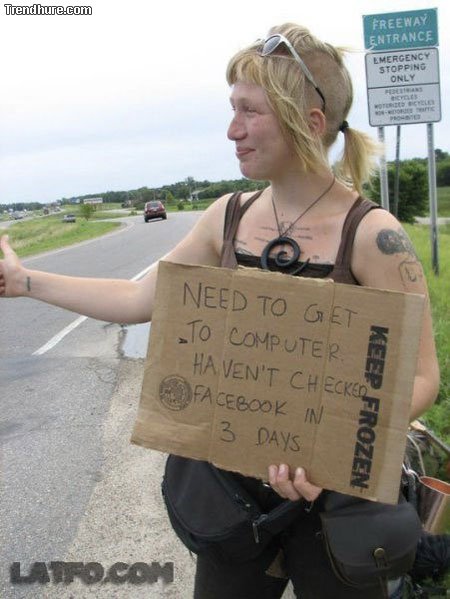 Trendhure.com
FREEWAY
ENTRANCE
EMERGENCY
STOPPING
ONLY
PEDESTRIANS
BICYCLES
MOTORIZED BICYCLES
NON-MOTORIZED TRAFFIC
PROHIBITED
NEED TO GET
TO COMPUTER.
HAVEN'T CHECKED
FACEBOOK IN
3 DAYS
KEEP FROZEN
LATFO.COM